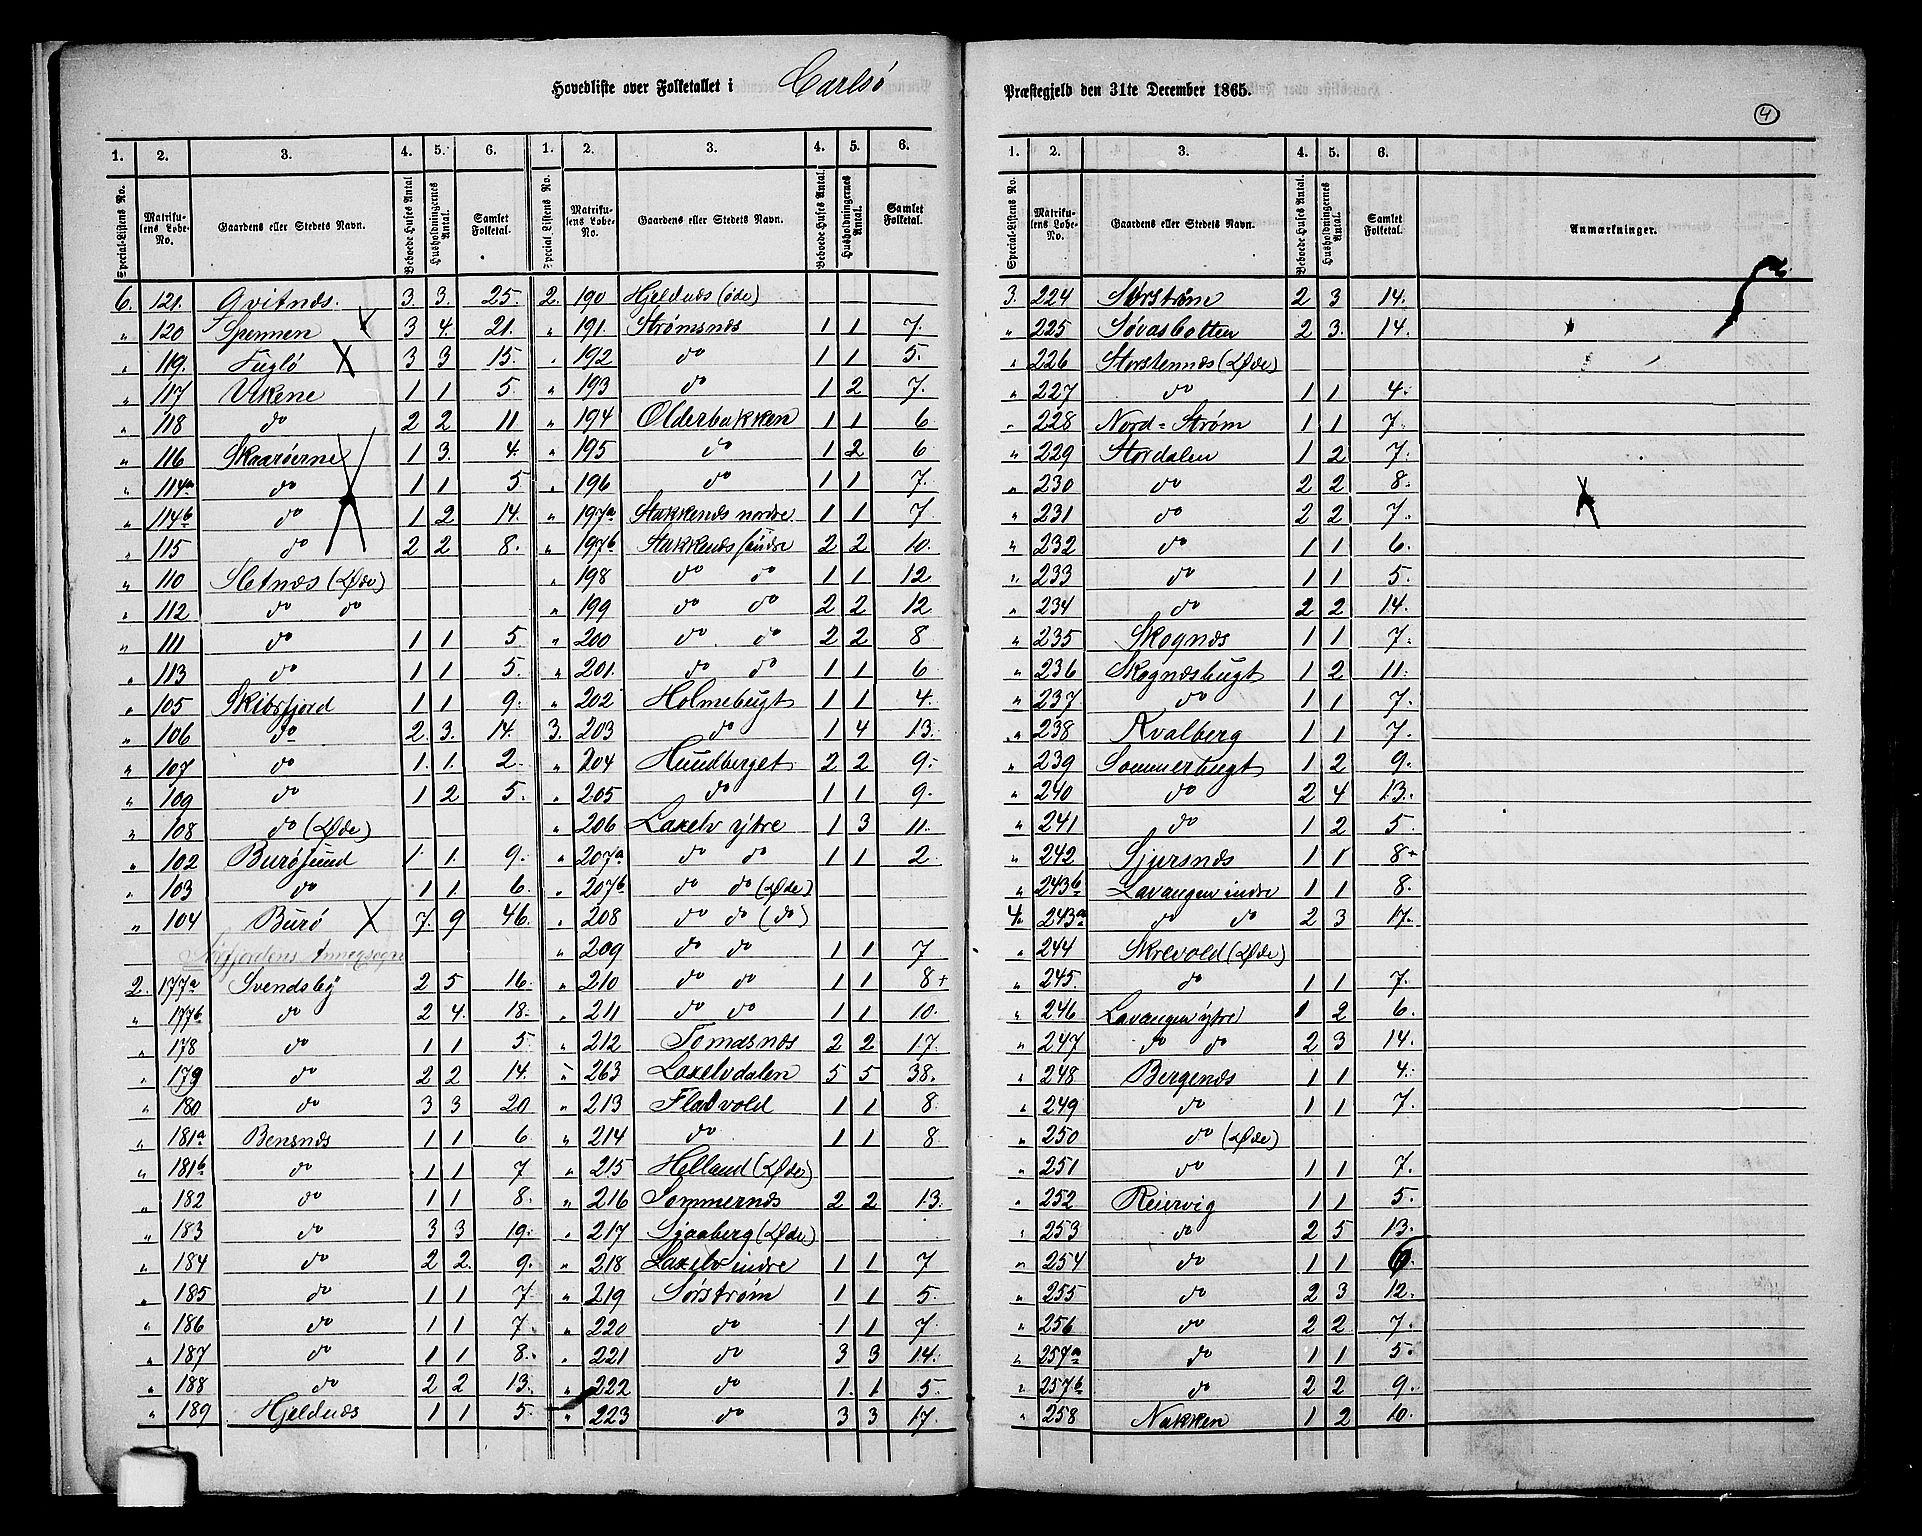 Hovedliste over Folketallet i Carlsö
Præstegjeld den 31te December 1865.
4
1. 2. 3. 4. 5. 6. 1. 2. 3. 4. 5. 6.
Special-Listens No. Matrikulens Løbe-No. Gaardens eller Stedets Navn. Beboede Huses Antal Husholdningernes Antal. Samlet Folketal. Special-Listens No. Matrikulens Løbe-No. Gaardens eller Stedets Navn. Beboede Huses Antal. Husholdningernes Antal. Samlet Folketal.
6. 121. Qvitnæs. 3. 3. 25.
" 120 Spennen X 3 4. 21.
" 119. Fuglö X 3 3 15.
" 117 Vikene 1 1 5.
" 118 do 2 2 11
" 116 Skaarörne 1 3. 4.
" 114a do 1 1 5
" 114b do 1 2 14.
" 115 do 2 2 8.
" 110 Sletnæs (Øde)
" 112 do do
" 111 do 1 1 5.
" 113 do 1 1 5.
" 105 Skibsfjord 1 1 9.
" 106 do 2. 3. 14.
" 107 do 1. 1. 2.
" 109 do 1 2 5.
" 108 do (Øde)
" 102 Burösund 1. 1. 9.
" 103 do 1 1. 6.
" 104 Burö X 7. 9 46.
Sörfjordens Annexsogn
2. 177a Svendsby 2 5 16.
" 177b do 2 4. 18.
" 178 do 1 1 5
" 179 do 2 2 14.
" 180 do 3 3 20
" 181a Bensnæs 1 1 6
" 181b do 1 1 7
" 182 do 1 1 8.
" 183 do 3 3 19.
" 184 do 2 2. 9.
" 185 do 1 1 7
" 186 do 1 1 7.
" 187 do 1 1 8.
" 188 do 2 2 13.
" 189 Hjeldnæs 1 1 5.
2. 190 Hjeldnæs (øde)
" 191. Strømsnæs 1 1 7.
" 192 do 1 1 5.
" 193 do 1 2 7.
" 194 Olderbakken 1 1 6
" 195 do 1 2 6
" 196 do 1 1 7.
" 197a Stakkenæs nordre 1 1 7
" 197b Stakkenæs søndre 2 2 10.
" 198 do do 1 1 12
" 199 do do 2 2 12
" 200 do do 2 2 8
" 201. do do 1 1 6
" 202 Holmebugt 1 1 4.
3. 203 do 1 4 13.
" 204 Hundberget 2 2 9.
" 205 do 1 1 9.
" 206 Laxelv ytre 1 3 11.
" 207a do do 1 1 2.
" 207b do do (Øde)
" 208 do do (do)
" 209 do do 1 1 7
" 210 do do 1 1 8+
" 211 do do 1 1 10.
" 212 Tomasnæs 2 2 17.
" 263 Laxelvdalen 5 5 38.
" 213 Fladvold 1 1 8.
" 214 do 1 1 8
" 215 Helland (Øde)
" 216 Sommernæs 2 2 13.
" 217 Sjaaberg (Øde)
" 218 Laxelv indre 1 1 7
" 219 Sørstrøm 1 1 5.
" 220 do 1 1 7
" 221 do 3 3 14.
" 222 do 1. 1 5.
" 223 do 3 3 17.
1. 2. 3. 4. 5. 6.
Special-Listens No. Matrikulens Løbe-No. Gaardens eller Stedets Navn. Beboede Huses Antal. Husholdningernes Antal. Samlet Folketal. Anmærkninger.
3. 224 Sørstrøm 2 3 14.
" 225 Søvasbotten 2 3. 14.
" 226 Storstennæs (Øde)
" 227 do 1 1 4.
" 228 Nord-Strøm 1 1 7.
" 229 Stordalen 1 2 7.
" 230 do 2 2 8.
" 231 do 2 2 7.
" 232 do 1 1 6.
" 233 do 1 1 5.
" 234 do 2 2 14.
" 235 Skognæs 1 1 7.
" 236 Skognæsbugt 1 2 11.
" 237 do 1 1 7.
" 238 Kvalberg 1 1 7.
" 239 Sommerbugt 1 2 9.
" 240 do 2 4 13.
" 241 do 1 2 5.
" 242 Sjursnæs 1 1 8+
" 243b Lavangen indre 1 1 8.
4. 243a do do 2 3 17.
" 244 Skrevold (Øde)
" 245. do 1 1 7.
" 246 Lavangen ytre 1 2 6.
" 247 do do 2 3 14.
" 248 Bergenæs 1 1 4.
" 249 do 1 1 7.
" 250 do (Øde)
" 251 do 1 1 7.
" 252 Reiervig 1 1 5.
" 253 do 2 5 13.
" 254 do 1 1 6.
" 255 do 2 3 12.
" 256 do 2 2 7.
" 257a do 1 1 5.
" 257b do 2 2 9.
" 258 Nakken 1 2 10.